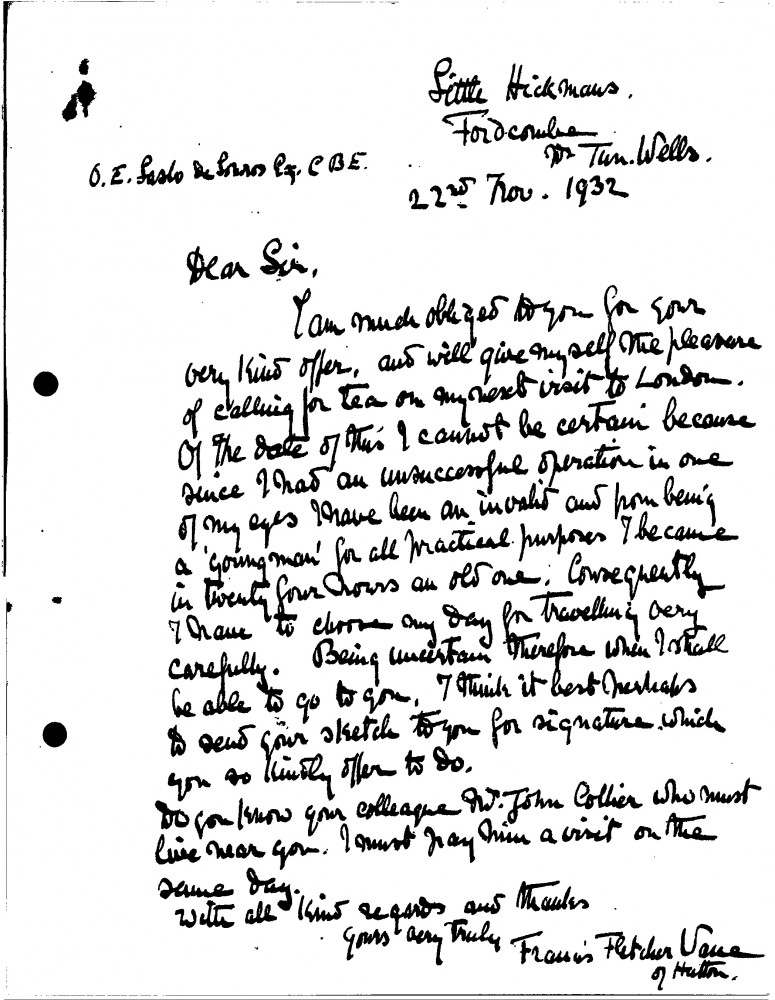 Little Hickmans.
Fordcombe
Nr Tun. Wells.
O. E. Laslo De Lombos Esq. C B E.
22nd Nov. 1932
Dear Sir,
I am much obliged to you for your
very kind offer, and will give myself the pleasure
of calling for tea on my next visit to London.
Of the date of this I cannot be certain because
since I had an unsuccessful operation in one
of my eyes I have been an invalid and from being
a 'young man' for all practical purposes I became
in twenty four hours an old one. Consequently
I have to choose my day for travelling very
carefully. Being uncertain therefore when I shall
be able to go to you, I think it best perhaps
to send your sketch to you for signature which
you so kindly offer to do.
Do you know your colleague Mr. John Collier who must
live near you. I must pay him a visit on the
same day.
With all kind regards and thanks
yours very truly Francis Fletcher Vane
of Hutton.